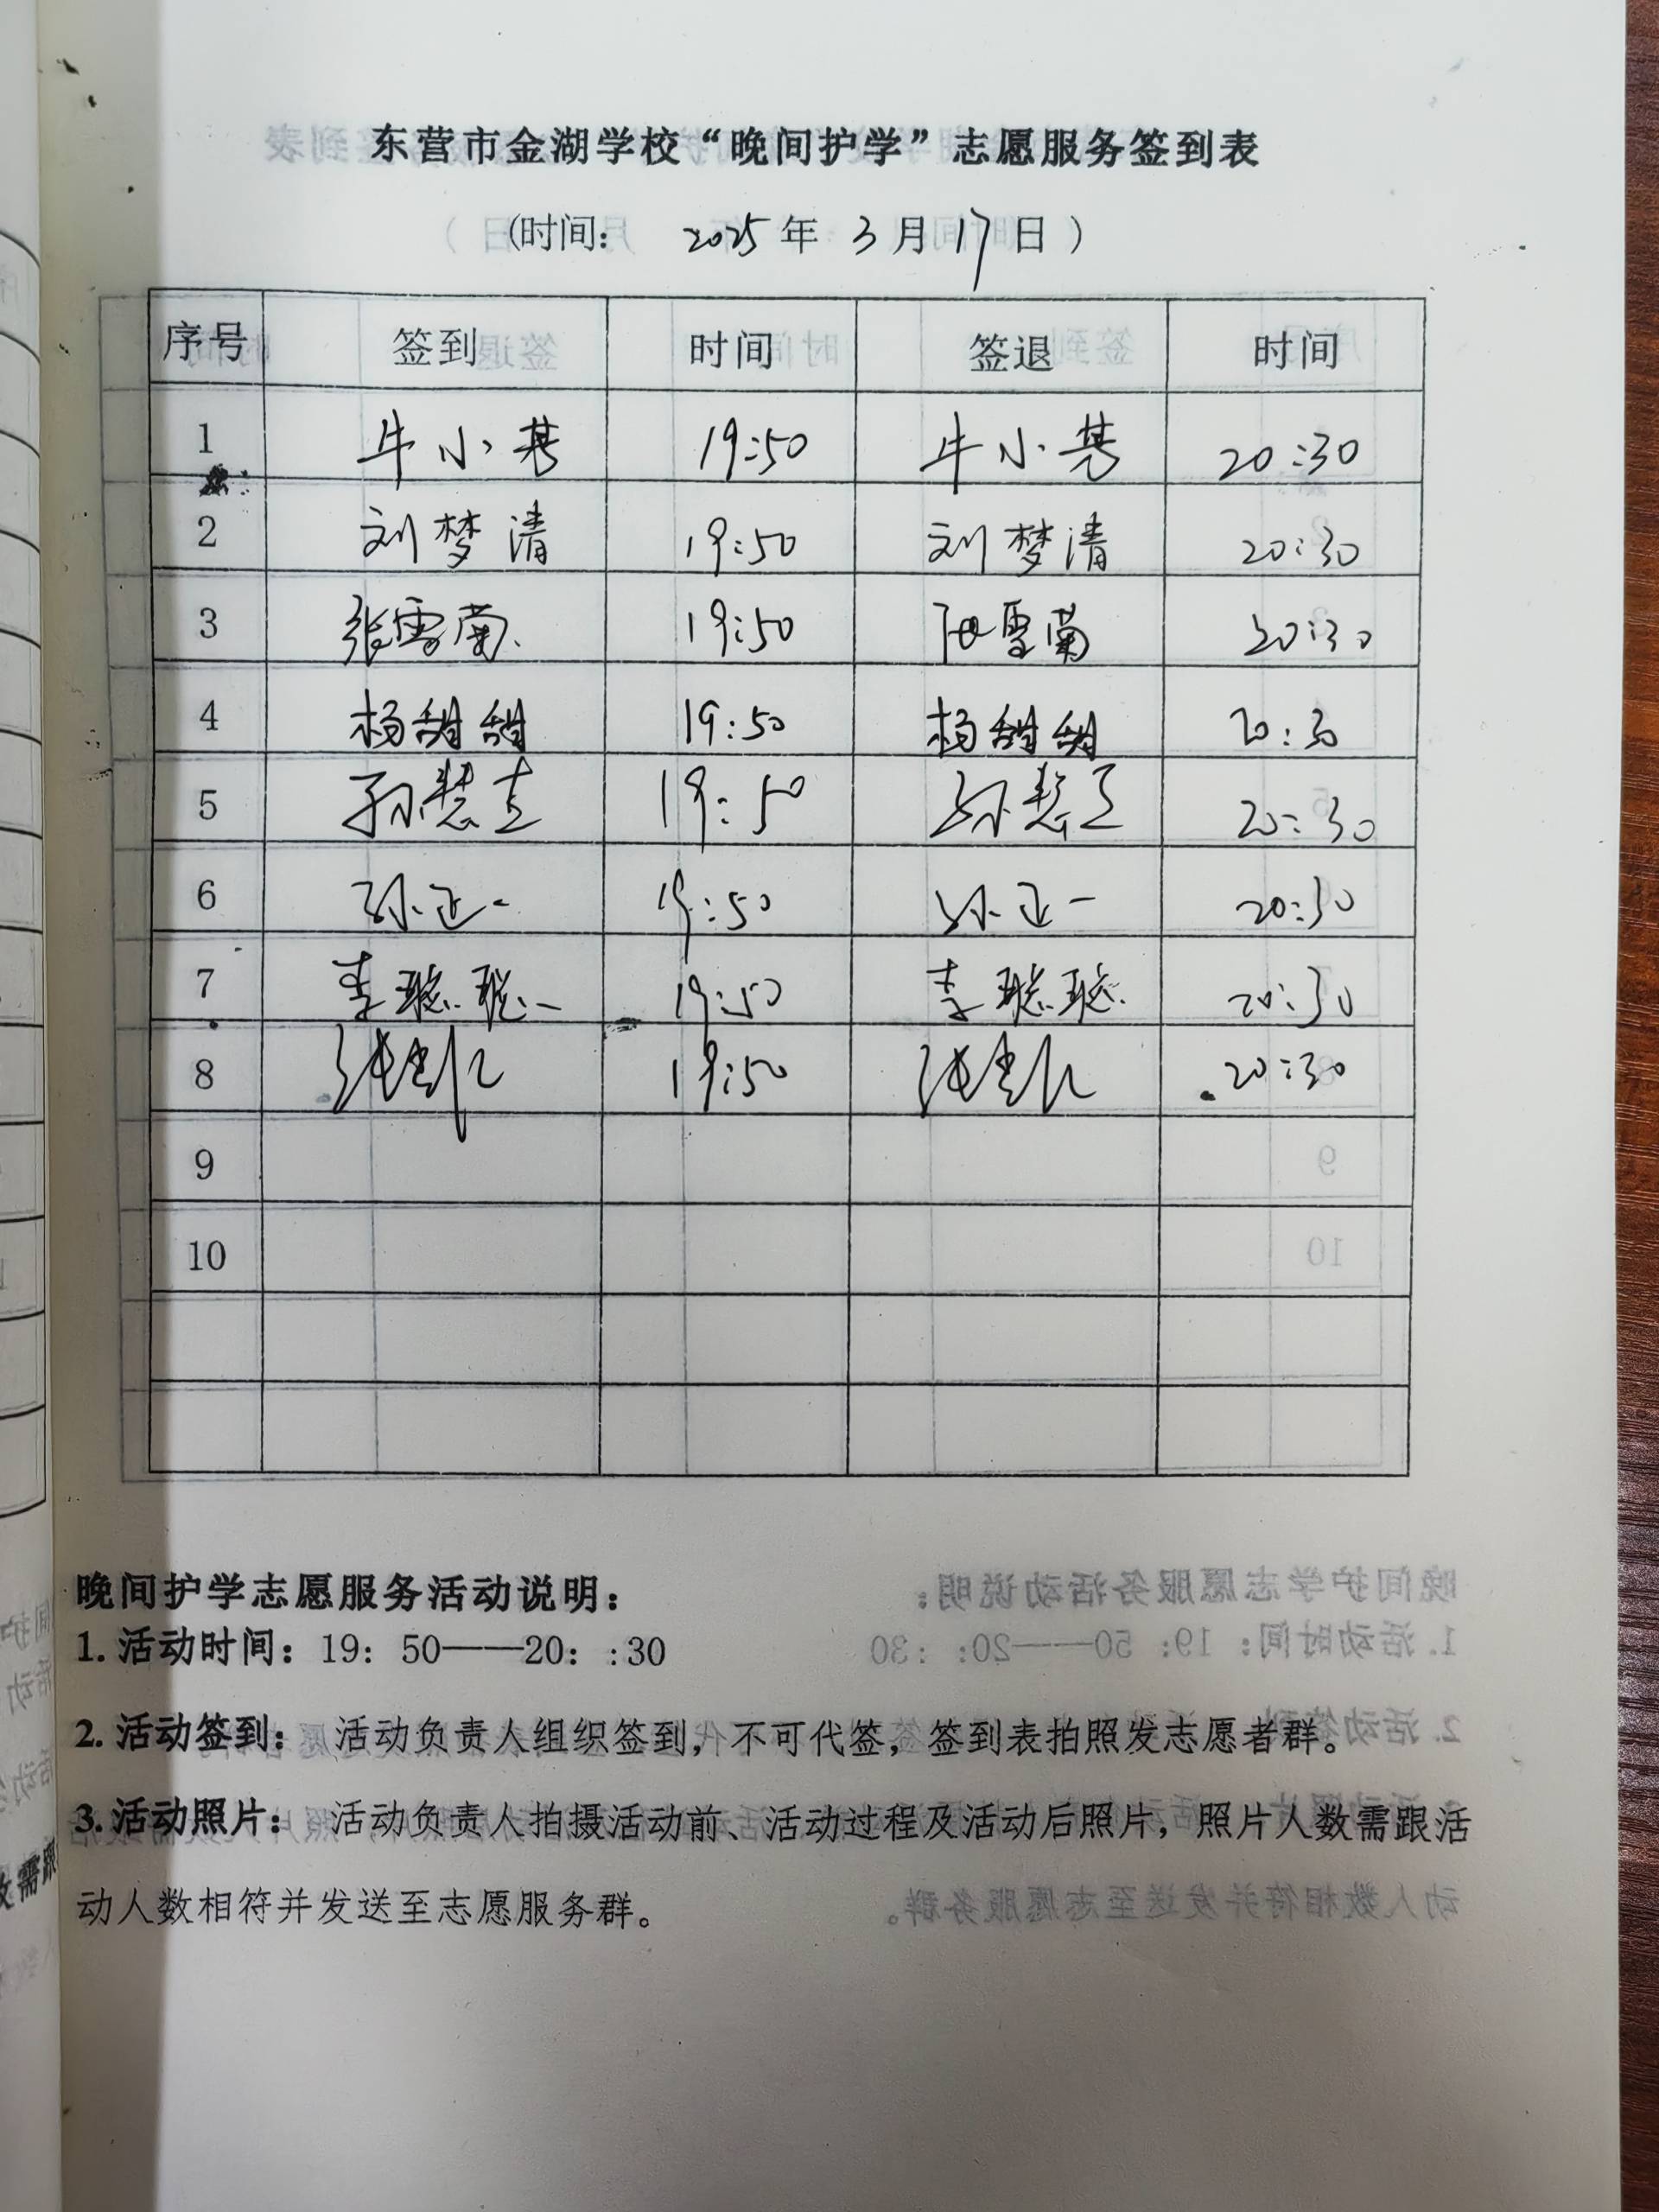 东营市金湖学校“晚间护学”志愿服务签到表
(时间: 2025 年 3 月 17 日 )
序号 签到 时间 签退 时间
1 牛小 19:50 牛小 20:30
2 刘梦清 19:50 刘梦清 20:30
3 张雪菊 19:50 张雪菊 20:30
4 杨甜甜 19:50 杨甜甜 20:30
5 孙慧 19:50 孙慧 20:30
6 孙正一 19:50 孙正一 20:30
7 李聪聪 19:50 李聪聪 20:30
8 张 19:50 张 20:30
9
10
晚间护学志愿服务活动说明:
1.活动时间: 19: 50——20: :30
2.活动签到: 活动负责人组织签到, 不可代签, 签到表拍照发志愿者群。
3.活动照片: 活动负责人拍摄活动前、活动过程及活动后照片, 照片人数需跟活
动人数相符并发送至志愿服务群。